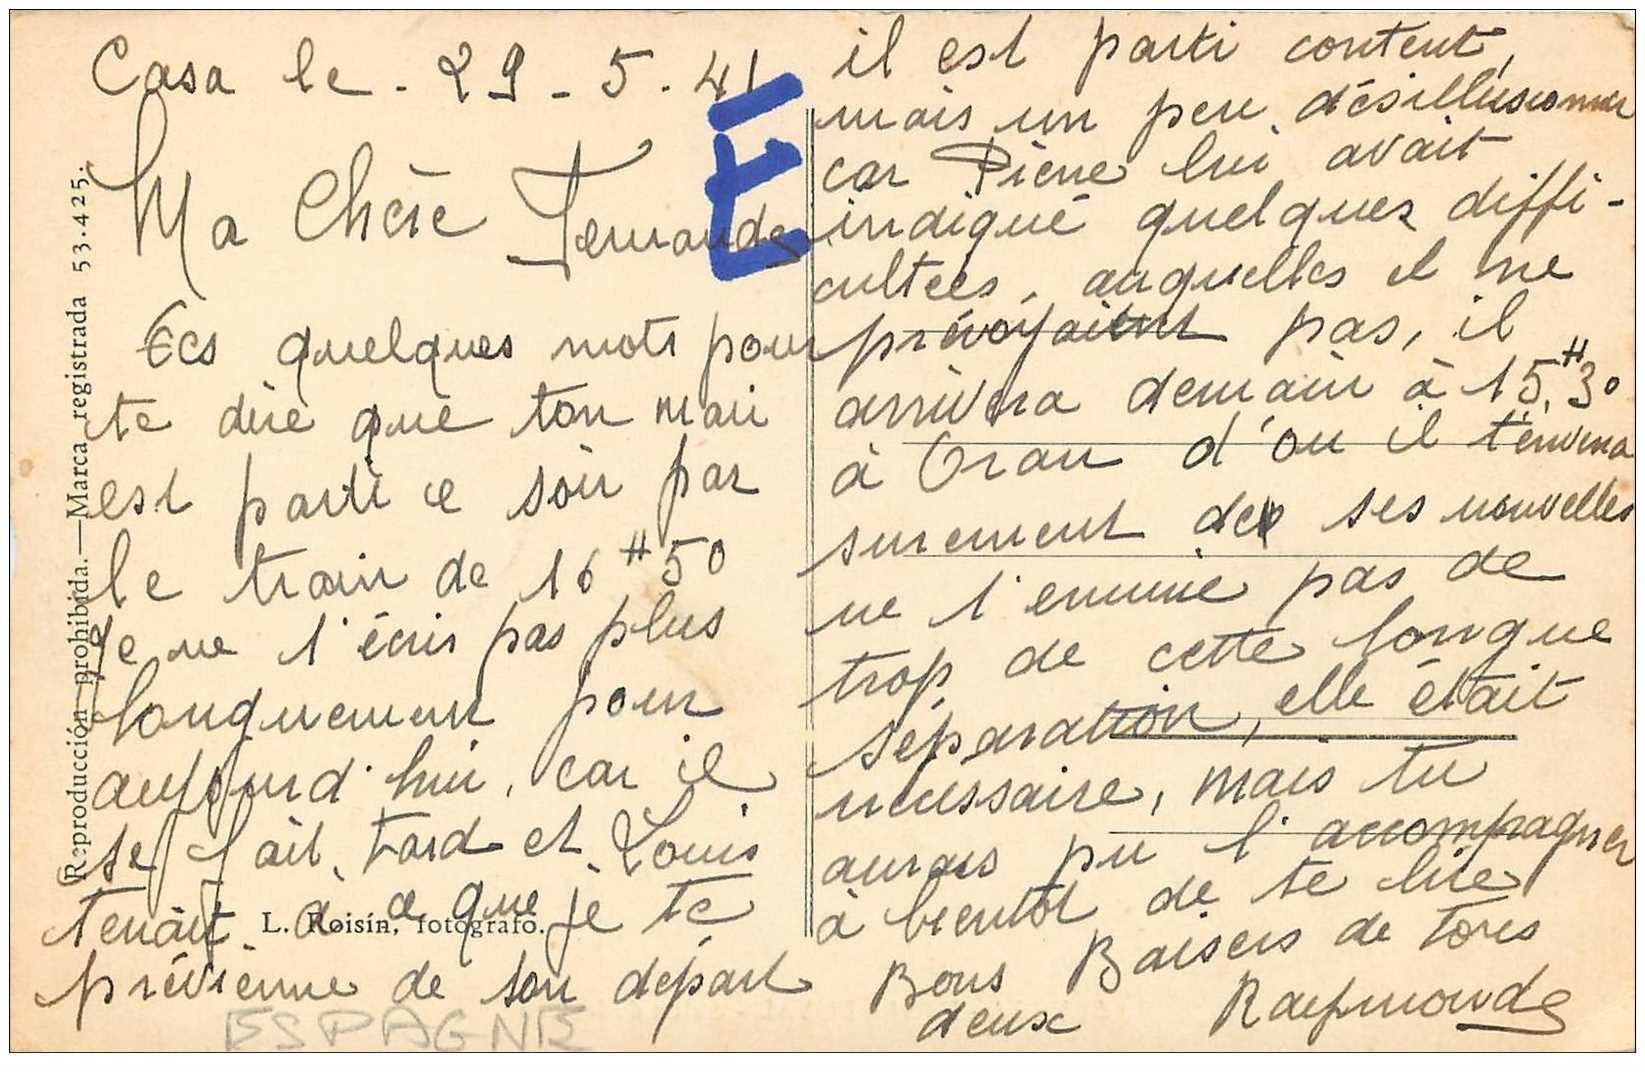 Casa le - 29 - 5 - 41
Ma Chère Fernande
Ces quelques mots pour
te dire que ton mari
est parti ce soir par
le train de 16 H 50
Je ne t'écris pas plus
longuement pour
aujourd'hui, car il
se fait tard et Louis
tenait à ce que je te
prévienne de son départ
il est parti content,
mais un peu désillusionner
car Pierre lui avait
indiqué quelques diffi-
cultées, auquelles il ne
prévoyaient pas, il
arrivera demain à 15 H 30
à Oran d'ou il t'enverra
surement de ses nouvelles
ne t'ennuie pas de
trop de cette longue
séparation, elle était
nécessaire, mais tu
aurais pu l'accompagner
à bientôt de te lire
Bons Baisers de tous
deux Raymonde
E
ESPAGNE
Reproducción prohibida.—Marca registrada 53.425.
L. Roisín, fotógrafo.